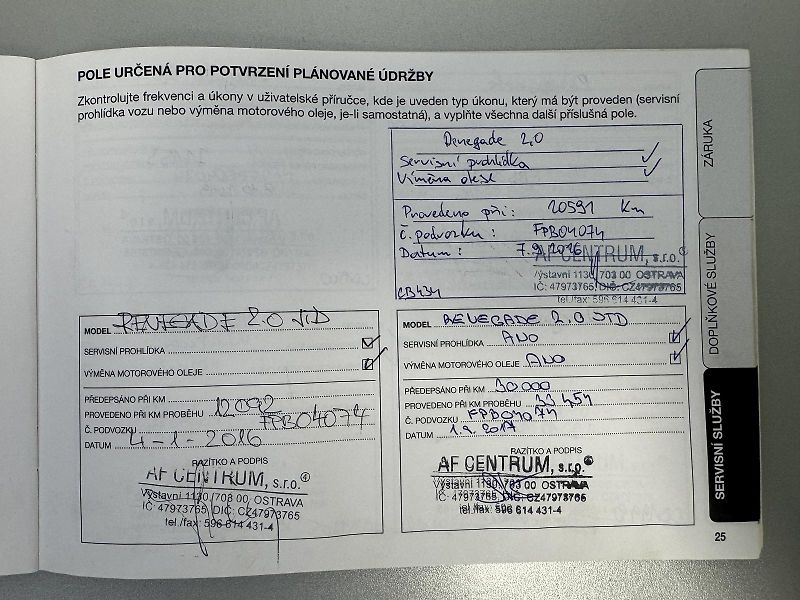 POLE URČENÁ PRO POTVRZENÍ PLÁNOVANÉ ÚDRŽBY
Zkontrolujte frekvenci a úkony v uživatelské příručce, kde je uveden typ úkonu, který má být proveden (servisní
prohlídka vozu nebo výměna motorového oleje, je-li samostatná), a vyplňte všechna další příslušná pole.
Renegade 2,0
Servisní prohlídka
Výměna oleje
Provedeno při: 20591 Km
Č. podvozku: FPB04074
Datum: 7.9.2016
AF CENTRUM, s.r.o.
Výstavní 1130, 703 00 OSTRAVA
IČ: 47973765, DIČ: CZ47973765
tel./fax: 596 614 431-4
MODEL RENEGADE 2.0 JTD
SERVISNÍ PROHLÍDKA
VÝMĚNA MOTOROVÉHO OLEJE
PŘEDEPSÁNO PŘI KM
PROVEDENO PŘI KM PROBĚHU 12092
Č. PODVOZKU FPB04074
DATUM 4-1-2016
RAZÍTKO A PODPIS
AF CENTRUM, s.r.o. ④
Výstavní 1130, 703 00 OSTRAVA
IČ: 47973765, DIČ: CZ47973765
tel./fax: 596 614 431-4
MODEL RENEGADE 2.0 JTD
SERVISNÍ PROHLÍDKA ANO
VÝMĚNA MOTOROVÉHO OLEJE ANO
PŘEDEPSÁNO PŘI KM 30.000
PROVEDENO PŘI KM PROBĚHU 33 454
Č. PODVOZKU FPB04074
DATUM 1.9.2017
RAZÍTKO A PODPIS
AF CENTRUM, s.r.o.
Výstavní 1130, 703 00 OSTRAVA
IČ: 47973765, DIČ: CZ47973765
tel./fax: 596 614 431-4
ZÁRUKA
DOPLŇKOVÉ SLUŽBY
SERVISNÍ SLUŽBY
25